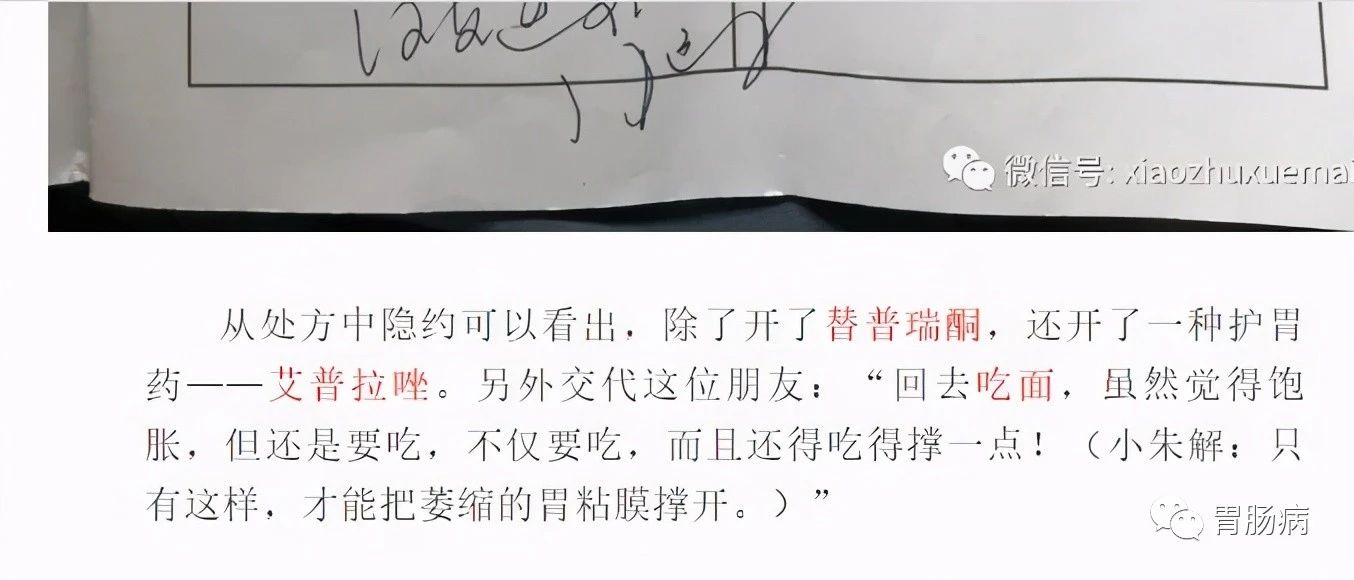 微信号: xiaozhuxuema
从处方中隐约可以看出，除了开了替普瑞酮，还开了一种护胃
药——艾普拉唑。另外交代这位朋友：“回去吃面，虽然觉得饱
胀，但还是要吃，不仅要吃，而且还得吃得撑一点！（小朱解：只
有这样，才能把萎缩的胃粘膜撑开。）”
胃肠病